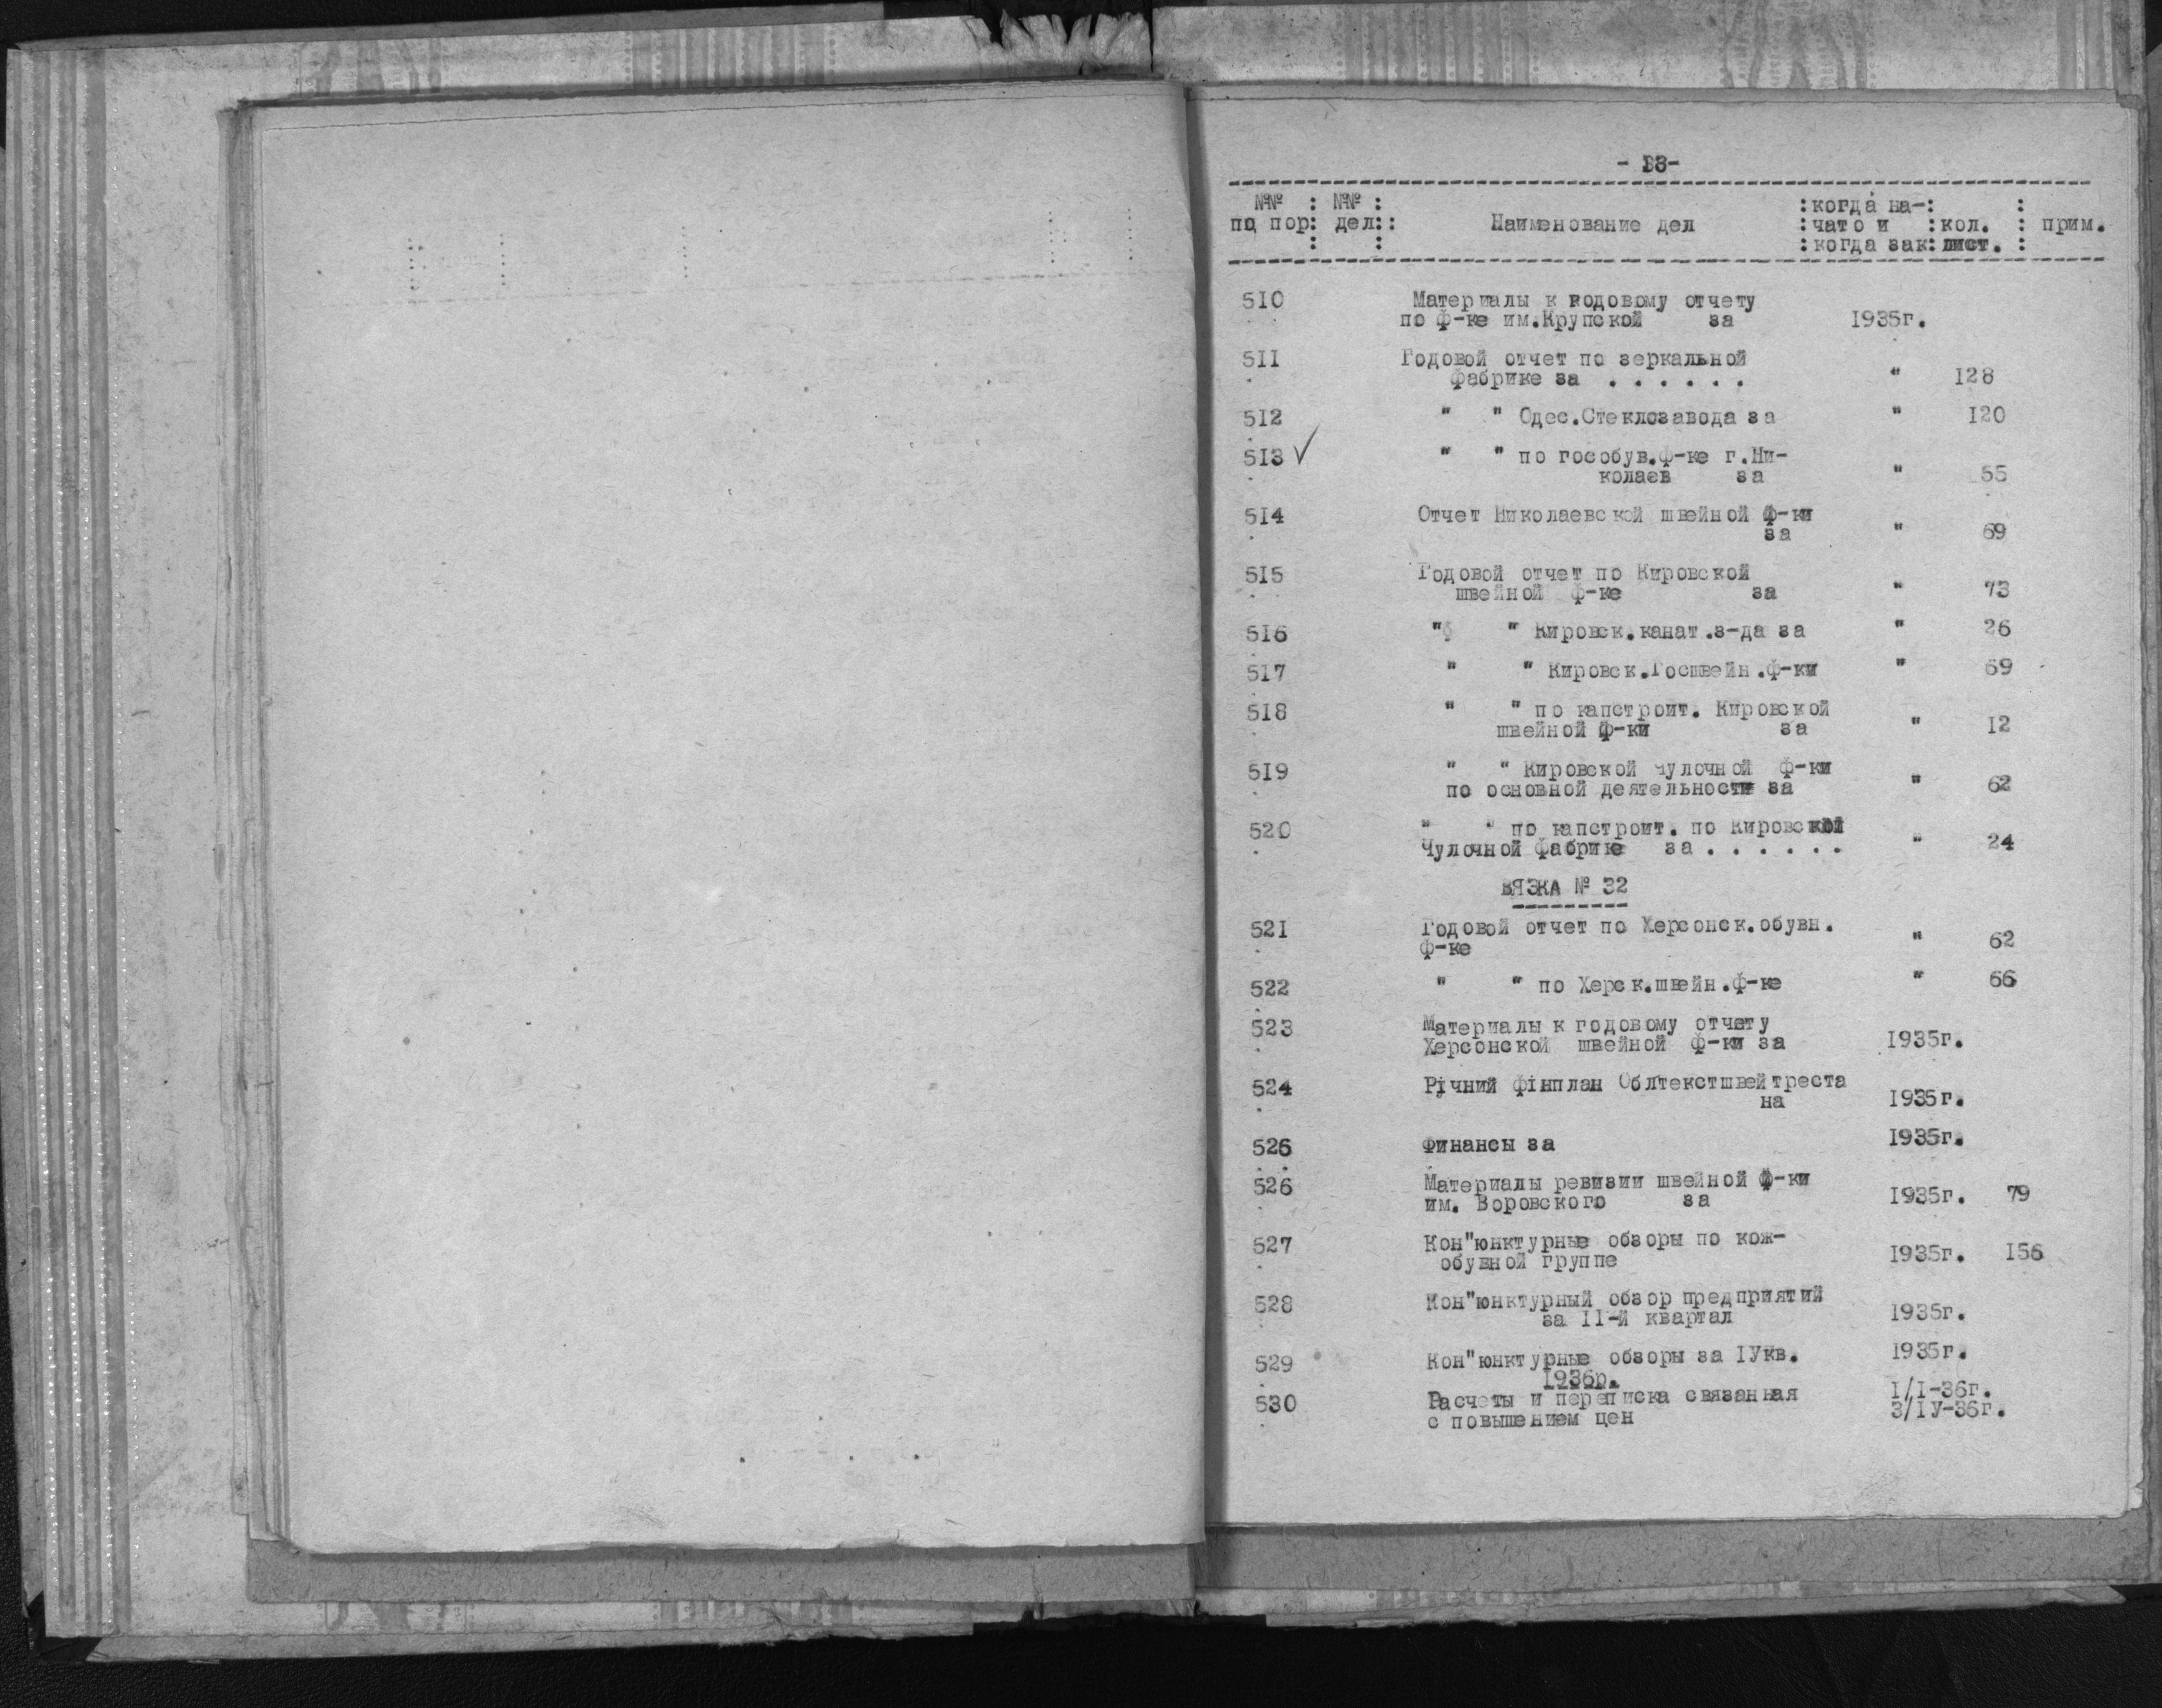 - 33-
№№ : №№ : :когда на-: :
по пор: дел:: Наименование дел :чато и :кол. : прим.
: : :когда зак:лист. :
510 Материалы к годовому отчету
по ф-ке им.Крупской за 1935г.
511 Годовой отчет по зеркальной
фабрике за . . . . . . " 128
512 " " Одес.Стеклозавода за " 120
513 √ " " по гособув.ф-ке г.Ни-
колаев за " 55
514 Отчет Николаевской швейной ф-ки
за " 69
515 Годовой отчет по Кировской
швейной ф-ке за " 73
516 " " Кировск.канат.з-да за " 26
517 " " Кировск.Госшвейн.ф-ки " 69
518 " " по капстроит. Кировской
швейной ф-ки за " 12
519 " " Кировской Чулочной ф-ки
по основной деятельности за " 62
520 " " по капстроит. по Кировской
Чулочной фабрике за . . . . . . " 24
ВЯЗКА № 32
521 Годовой отчет по Херсонск.обувн.
ф-ке " 62
522 " " по Херск.швейн.ф-ке " 66
523 Материалы к годовому отчету
Херсонской швейной ф-ки за 1935г.
524 Річний фінплан Облтекстшвейтреста
на 1935г.
526 Финансы за 1935г.
526 Материалы ревизии швейной ф-ки
им. Воровского за 1935г. 79
527 Кон"юнктурные обзоры по кож-
обувной группе 1935г. 156
528 Кон"юнктурный обзор предприятий
за II-й квартал 1935г.
529 Кон"юнктурные обзоры за IУкв. 1935г.
1936р.
530 Расчеты и переписка связанная I/I-36г.
с повышением цен 3/IУ-36г.